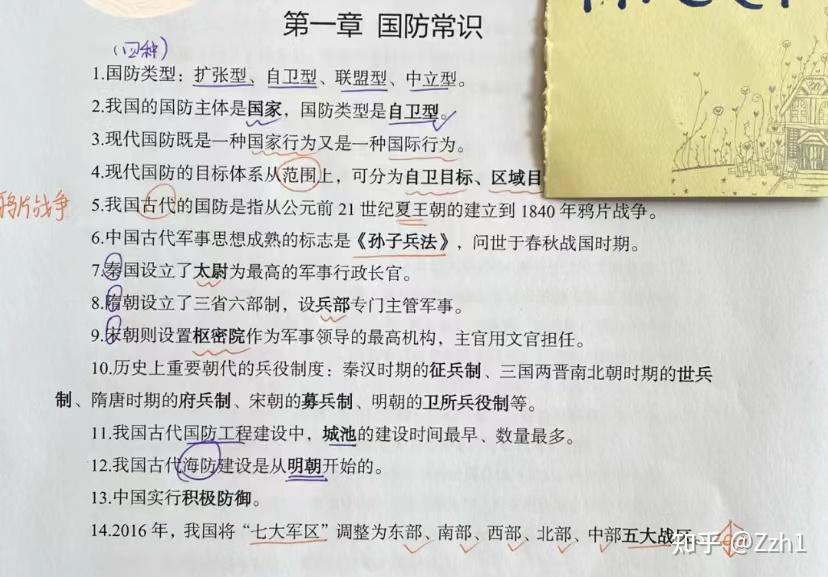 第一章 国防常识
(四种)
1.国防类型：扩张型、自卫型、联盟型、中立型。
2.我国的国防主体是国家，国防类型是自卫型。
3.现代国防既是一种国家行为又是一种国际行为。
4.现代国防的目标体系从范围上，可分为自卫目标、区域目
鸦片战争
5.我国古代的国防是指从公元前 21 世纪夏王朝的建立到 1840 年鸦片战争。
6.中国古代军事思想成熟的标志是《孙子兵法》，问世于春秋战国时期。
7.秦国设立了太尉为最高的军事行政长官。
8.隋朝设立了三省六部制，设兵部专门主管军事。
9.宋朝则设置枢密院作为军事领导的最高机构，主官用文官担任。
10.历史上重要朝代的兵役制度：秦汉时期的征兵制、三国两晋南北朝时期的世兵
制、隋唐时期的府兵制、宋朝的募兵制、明朝的卫所兵役制等。
11.我国古代国防工程建设中，城池的建设时间最早、数量最多。
12.我国古代海防建设是从明朝开始的。
13.中国实行积极防御。
14.2016 年，我国将“七大军区”调整为东部、南部、西部、北部、中部五大战区
知乎 @Zzh1